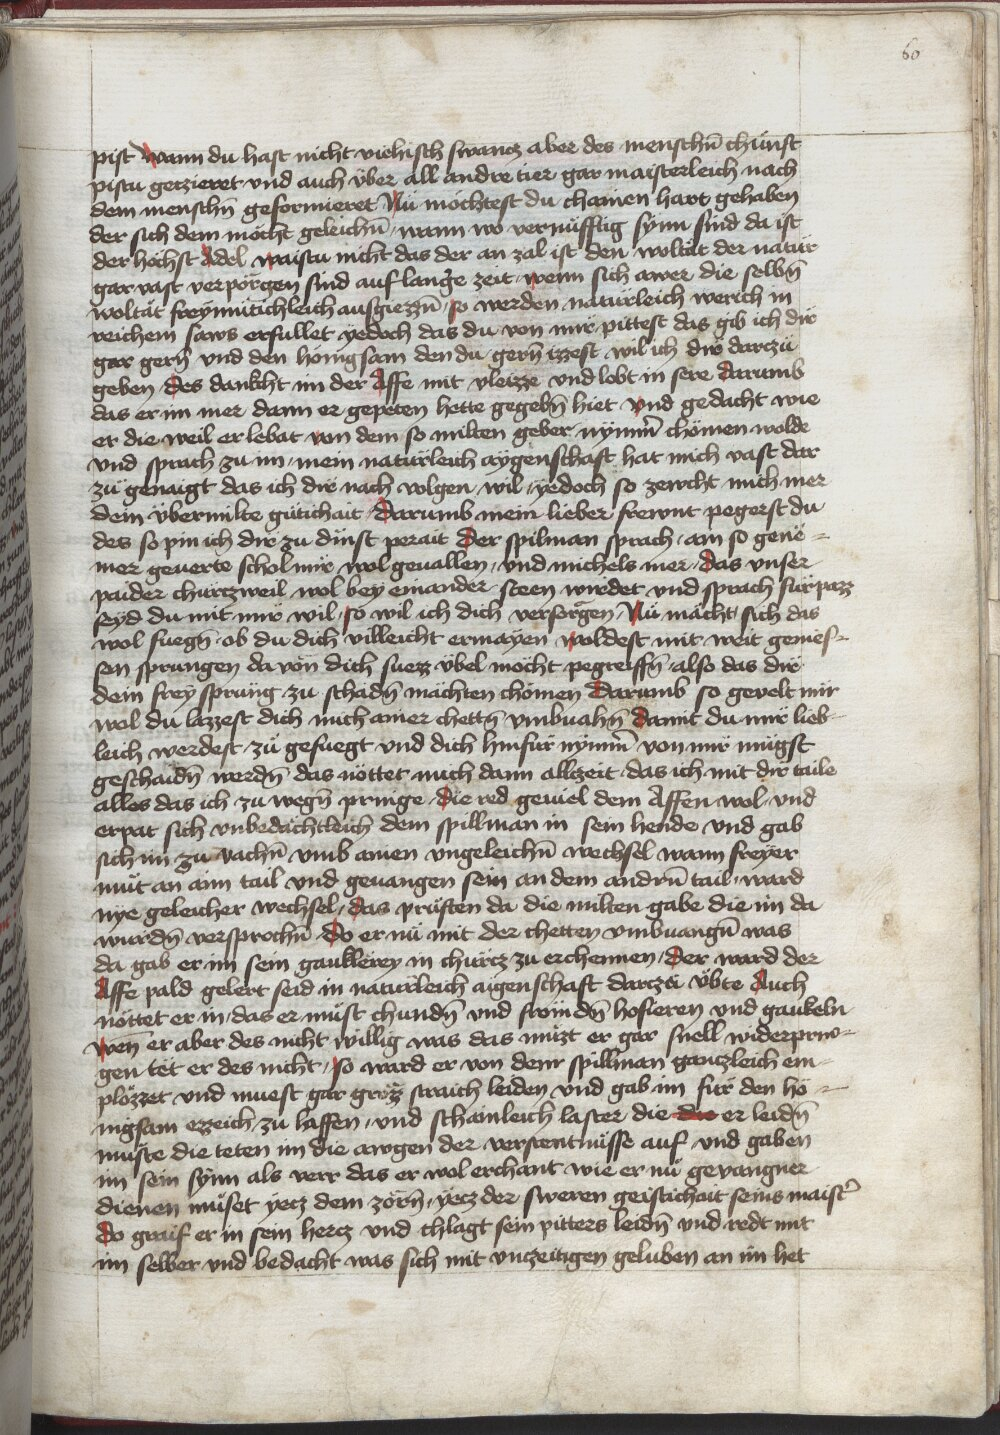 60
pist Wann du hast nicht viehisch swancz aber des menschn̄ chünst
pistu geczieret vnd auch über all andre tier gar maisterleich nach
dem menschn̄ geformieret Nü möchtest du chainen hart gehaben
der sich dem möcht geleichn̄ / wann wo vernüfftig synn sind da ist
der höchst Adel waistu nicht das der an zal ist den woltät der natür
gar vast verporgen sind auf lange zeit wenn sich awer die selbn̄
woltät freymütichleich ausgiezzn̄ / so werden natürleich werich in
reichem saws erfullet yedoch das du von mir pittest das gib ich dir
gar gern̄ vnd den hönigsam den du gern̄ izzest wil ich dir darczü
geben des dankcht im der Affe mit vleizze vnd lobt in sere darumb
das er im mer dann er gepeten hette gegebn̄ hiet vnd gedacht wie
er die weil er lebat von dem so milten geber nymm̄ chömen wolde
vnd sprach zu im mein natürleich aygenschaft hat mich vast dar
zü genaigt das ich dir nach volgen wil yedoch so zewcht mich mer
dein übermilte gütichait Darumb mein lieber frewnt pegerst du
des so pin ich dir zu dinst perait Der spilman sprach ain so genë-
mer geuerte schol mir wol geuallen vnd michels mer das vnser
paider churczweil wol bey einander steen wirdet vnd sprach fürpazz
seyd du mit mir wil so wil ich dich versorgen Nü mächt sich das
wol fuegn̄ ob du dich villeicht ermayen woldest mit weit gemes-
sen sprungen da von dich fuezz übel möcht pegreiffn̄ also das dir
dein frey sprüng zu schadn̄ mächten chömen Darumb so geuelt mir
wol du lazzest dich mich ainer chettn̄ vmbuahn̄ damit du mir lieb-
leich werdest zü gefuegt vnd dich hinfür nymm̄ von mir mügst
geschaidn̄ werdn̄ das nöttet mich dann allczeit das ich mit dir taile
alles das ich zu wegn̄ pringe Die red geuiel dem Affen wol vnd
erpat sich vnbedächtleich dem spillman in sein hende vnd gab
sich im zu vachn̄ vmb ainen vngeleichn̄ wechsel wann freyer
müt an ainn tail vnd geuangen sein an dem andrn̄ tail ward
nye geleicher wechsel / das prüften da die milten gabe die im da
würdn̄ versprochn̄ Do er nü mit der chetten vmbuangn̄ was
da gab er im sein gauklerey in chürcz zu erchennen / der ward der
Affe pald gelert seid in natürleich aigenschaft darczü übte Auch
nöttet er in das er müst chundn̄ vnd frömdn̄ hofieren vnd gaukeln
Wen̄ er aber des nicht willig was das müzt er gar snell widerprin-
gen tët er des nicht / so ward er von dem spillman ganczleich em-
plözzet vnd muest gar grözz straich leiden vnd gab im für den hö-
nigsam ezzeich zu laffen vnd schämleich laster die die er leidn̄
müste die teten im die awgen der verstentnüsse auf vnd gaben
im sein synn als verr das er wol erchant wie er nü geuangner
dienen müset yecz dem zorn̄ yecz der sweren geitichait seins maistr̄
Do graif er in sein hercz vnd chlagt sein pitters leidn̄ vnd redt mit
im selber vnd bedacht was sich mit vnczeitigen geluben an im het